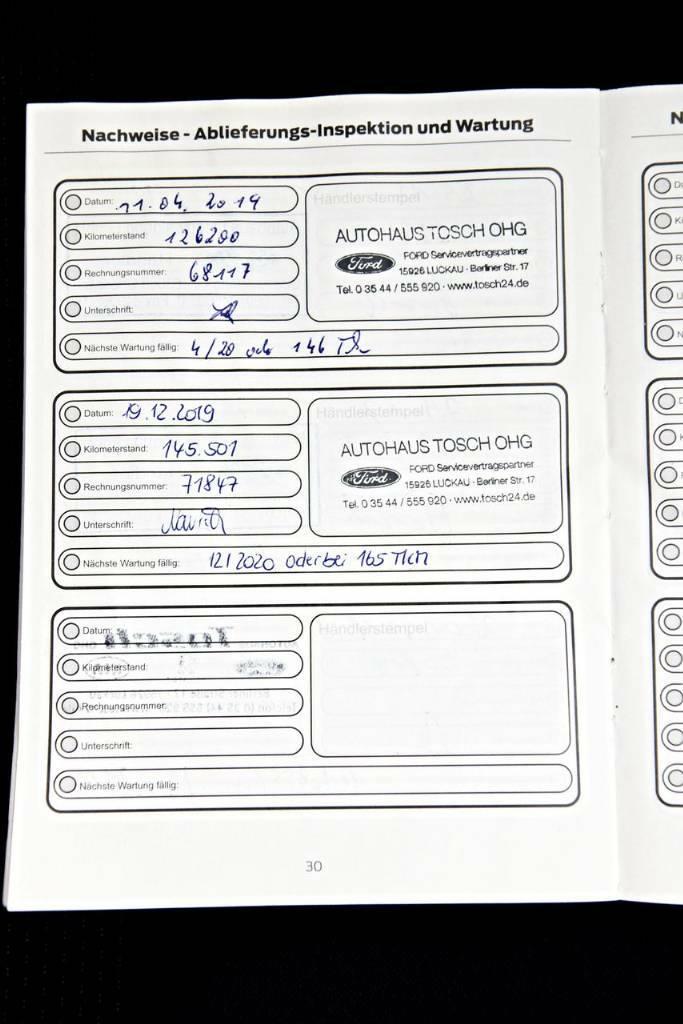 Nachweise - Ablieferungs-Inspektion und Wartung
N
Datum: 11.04.2019
Kilometerstand: 126200
Rechnungsnummer: 68117
Unterschrift:
Nächste Wartung fällig: 4/20 oder 146 T
Händlerstempel
AUTOHAUS TOSCH OHG
Ford
FORD Servicevertragspartner
15926 LUCKAU · Berliner Str. 17
Tel. 0 35 44 / 555 920 · www.tosch24.de
Datum: 19.12.2019
Kilometerstand: 145.501
Rechnungsnummer: 71847
Unterschrift:
Nächste Wartung fällig: 12/2020 oder bei 165 TKM
Händlerstempel
AUTOHAUS TOSCH OHG
Ford
FORD Servicevertragspartner
15926 LUCKAU · Berliner Str. 17
Tel. 0 35 44 / 555 920 · www.tosch24.de
Datum:
Kilometerstand:
Rechnungsnummer:
Unterschrift:
Nächste Wartung fällig:
Händlerstempel
30